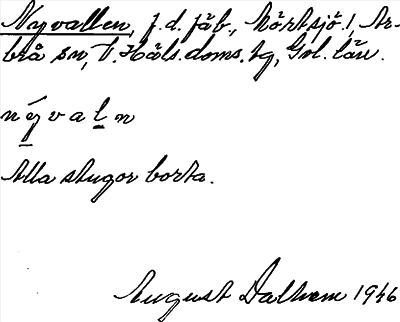 Nyvallen, f.d. fäb., Mörtsjö 1, Ar-
brå sn, V. Häls. doms. tg, Gvl. län.
nývaln
Alla stugor borta.
August Dalhem 1946